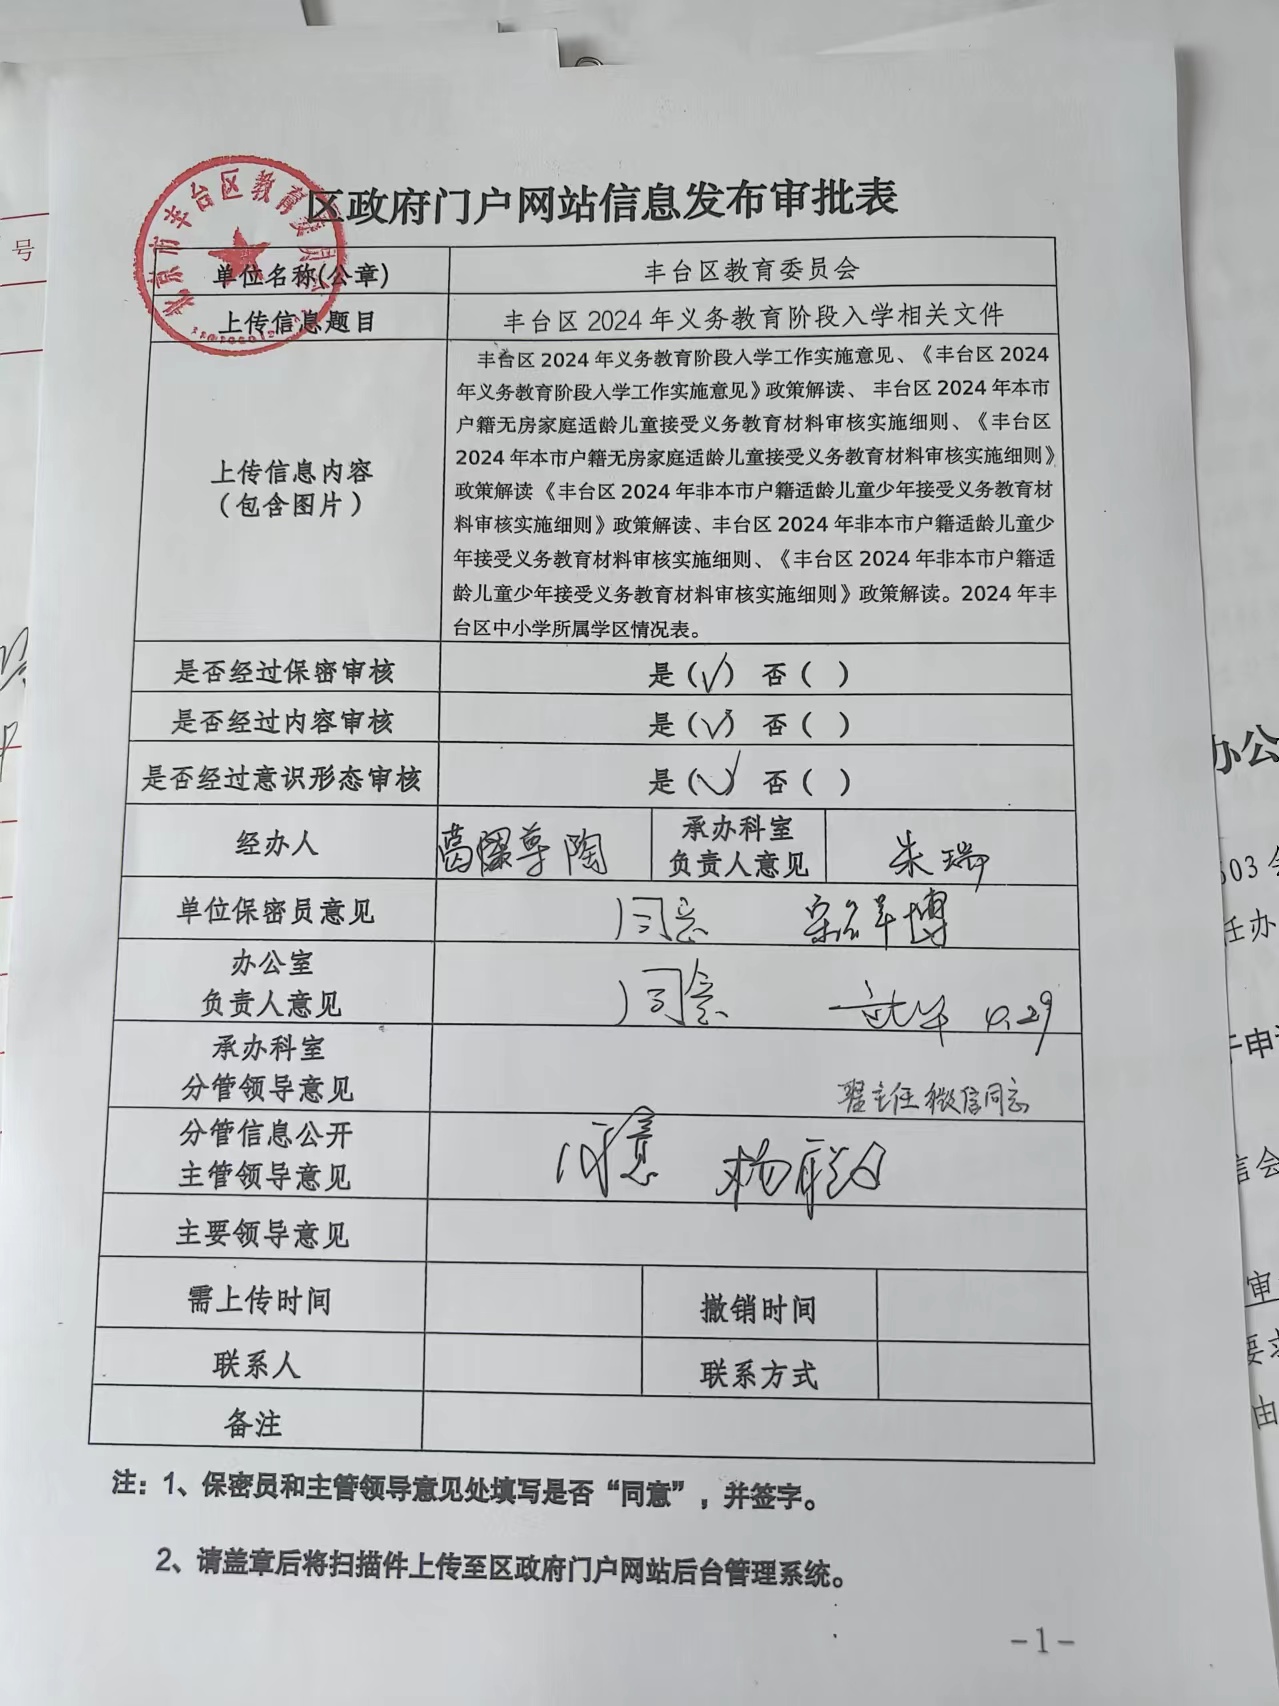 北京市丰台区教育委员会
区政府门户网站信息发布审批表
单位名称(公章)
丰台区教育委员会
上传信息题目
丰台区 2024 年义务教育阶段入学相关文件
上传信息内容
（包含图片）
丰台区 2024 年义务教育阶段入学工作实施意见、《丰台区 2024
年义务教育阶段入学工作实施意见》政策解读、 丰台区 2024 年本市
户籍无房家庭适龄儿童接受义务教育材料审核实施细则、《丰台区
2024 年本市户籍无房家庭适龄儿童接受义务教育材料审核实施细则》
政策解读《丰台区 2024 年非本市户籍适龄儿童少年接受义务教育材
料审核实施细则》政策解读、丰台区 2024 年非本市户籍适龄儿童少
年接受义务教育材料审核实施细则、《丰台区 2024 年非本市户籍适
龄儿童少年接受义务教育材料审核实施细则》政策解读。2024 年丰
台区中小学所属学区情况表。
是否经过保密审核
是(√) 否( )
是否经过内容审核
是(√) 否( )
是否经过意识形态审核
是(√) 否( )
经办人
陶
承办科室
负责人意见
朱瑞
单位保密员意见
同意
博
办公室
负责人意见
同意
4.29
承办科室
分管领导意见
主任微信同意
分管信息公开
主管领导意见
同意 杨
主要领导意见
需上传时间
撤销时间
联系人
联系方式
备注
注：1、保密员和主管领导意见处填写是否“同意”，并签字。
2、请盖章后将扫描件上传至区政府门户网站后台管理系统。
-1-
号
办公
503
任办
于申
信会
审
要求
由